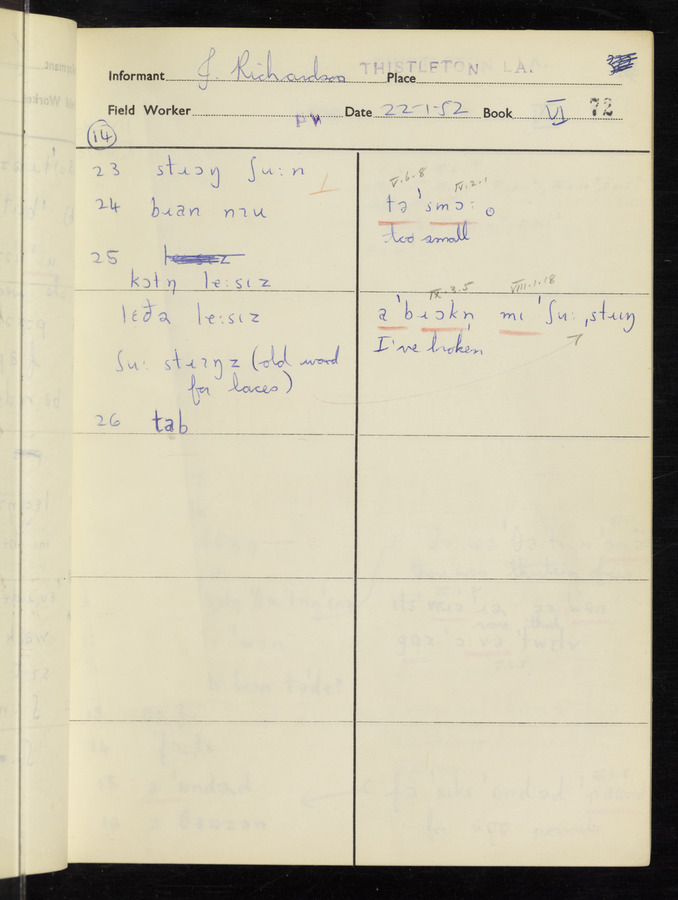 Informant J. Richardson Place THISTLETON LA.
Field Worker PW Date 22-1-52 Book VI 72
14
23 stɹɔŋ ʃuːn
24 bɹan nɪu
25
kɔtn̩ leːsɪz
lɛðə leːsɪz
ʃuː stɹɪŋz (old word
for laces)
26 tab
V.6.8 IV.2.1
tə ˈsmɔː
too small
IX.3.5 VIII.1.18
a ˈbɹɔkn̩ mɪ ˈʃuːˌstɹɪŋ
I've broken